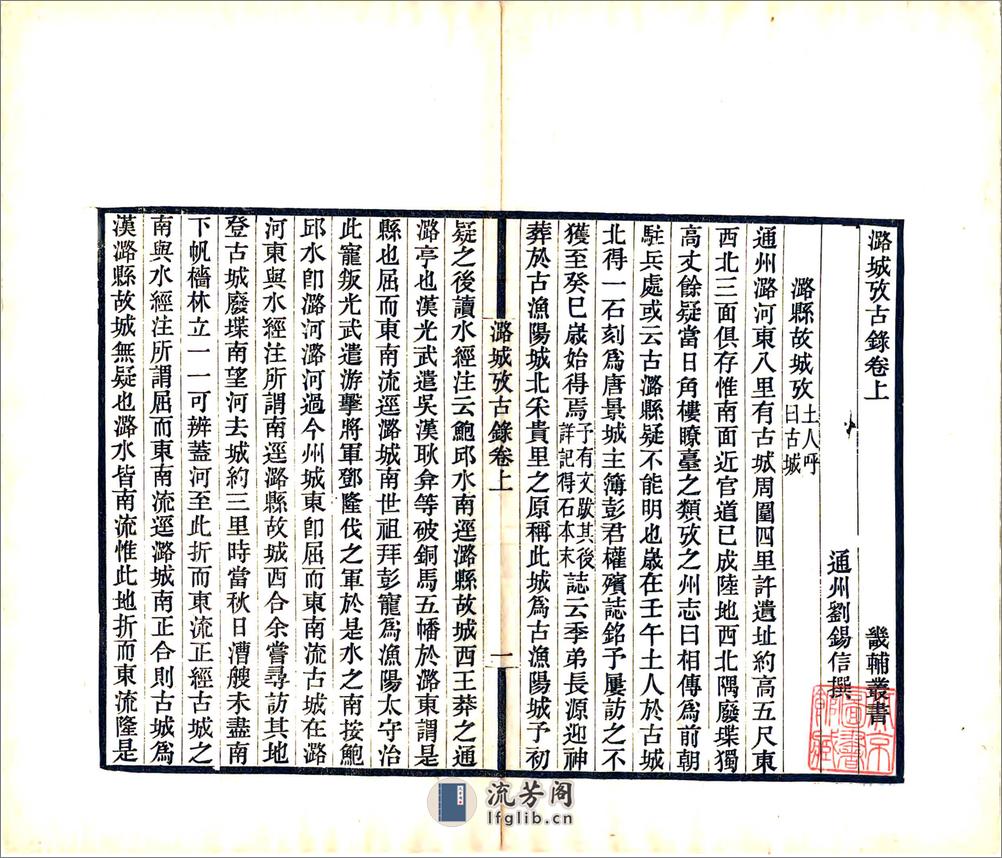 潞城攷古錄卷上
畿輔叢書
通州劉錫信撰
潞縣故城攷土人呼曰古城
通州潞河東八里有古城周圍四里許遺址約高五尺東
西北三面俱存惟南面近官道已成陸地西北隅廢堞獨
高丈餘疑當日角樓瞭臺之類攷之州志曰相傳爲前朝
駐兵處或云古潞縣疑不能明也歲在壬午土人於古城
北得一石刻爲唐景城主簿彭君權殯誌銘予屢訪之不
獲至癸巳歲始得焉予有文跋其後詳記得石本末誌云季弟長源迎神
葬於古漁陽城北采貴里之原稱此城爲古漁陽城予初
潞城攷古錄卷上
一
疑之後讀水經注云鮑邱水南逕潞縣故城西王莽之通
潞亭也漢光武遣吳漢耿弇等破銅馬五幡於潞東謂是
縣也屈而東南流逕潞城南世祖拜彭寵爲漁陽太守治
此寵叛光武遣游擊將軍鄧隆伐之軍於是水之南按鮑
邱水卽潞河潞河過今州城東卽屈而東南流古城在潞
河東與水經注所謂南逕潞縣故城西合余嘗尋訪其地
登古城廢堞南望河去城約三里時當秋日漕艘未盡南
下帆檣林立一一可辨蓋河至此折而東流正經古城之
南與水經注所謂屈而東南流逕潞城南正合則古城爲
漢潞縣故城無疑也潞水皆南流惟此地折而東流隆是
流芳阁
lfglib.cn